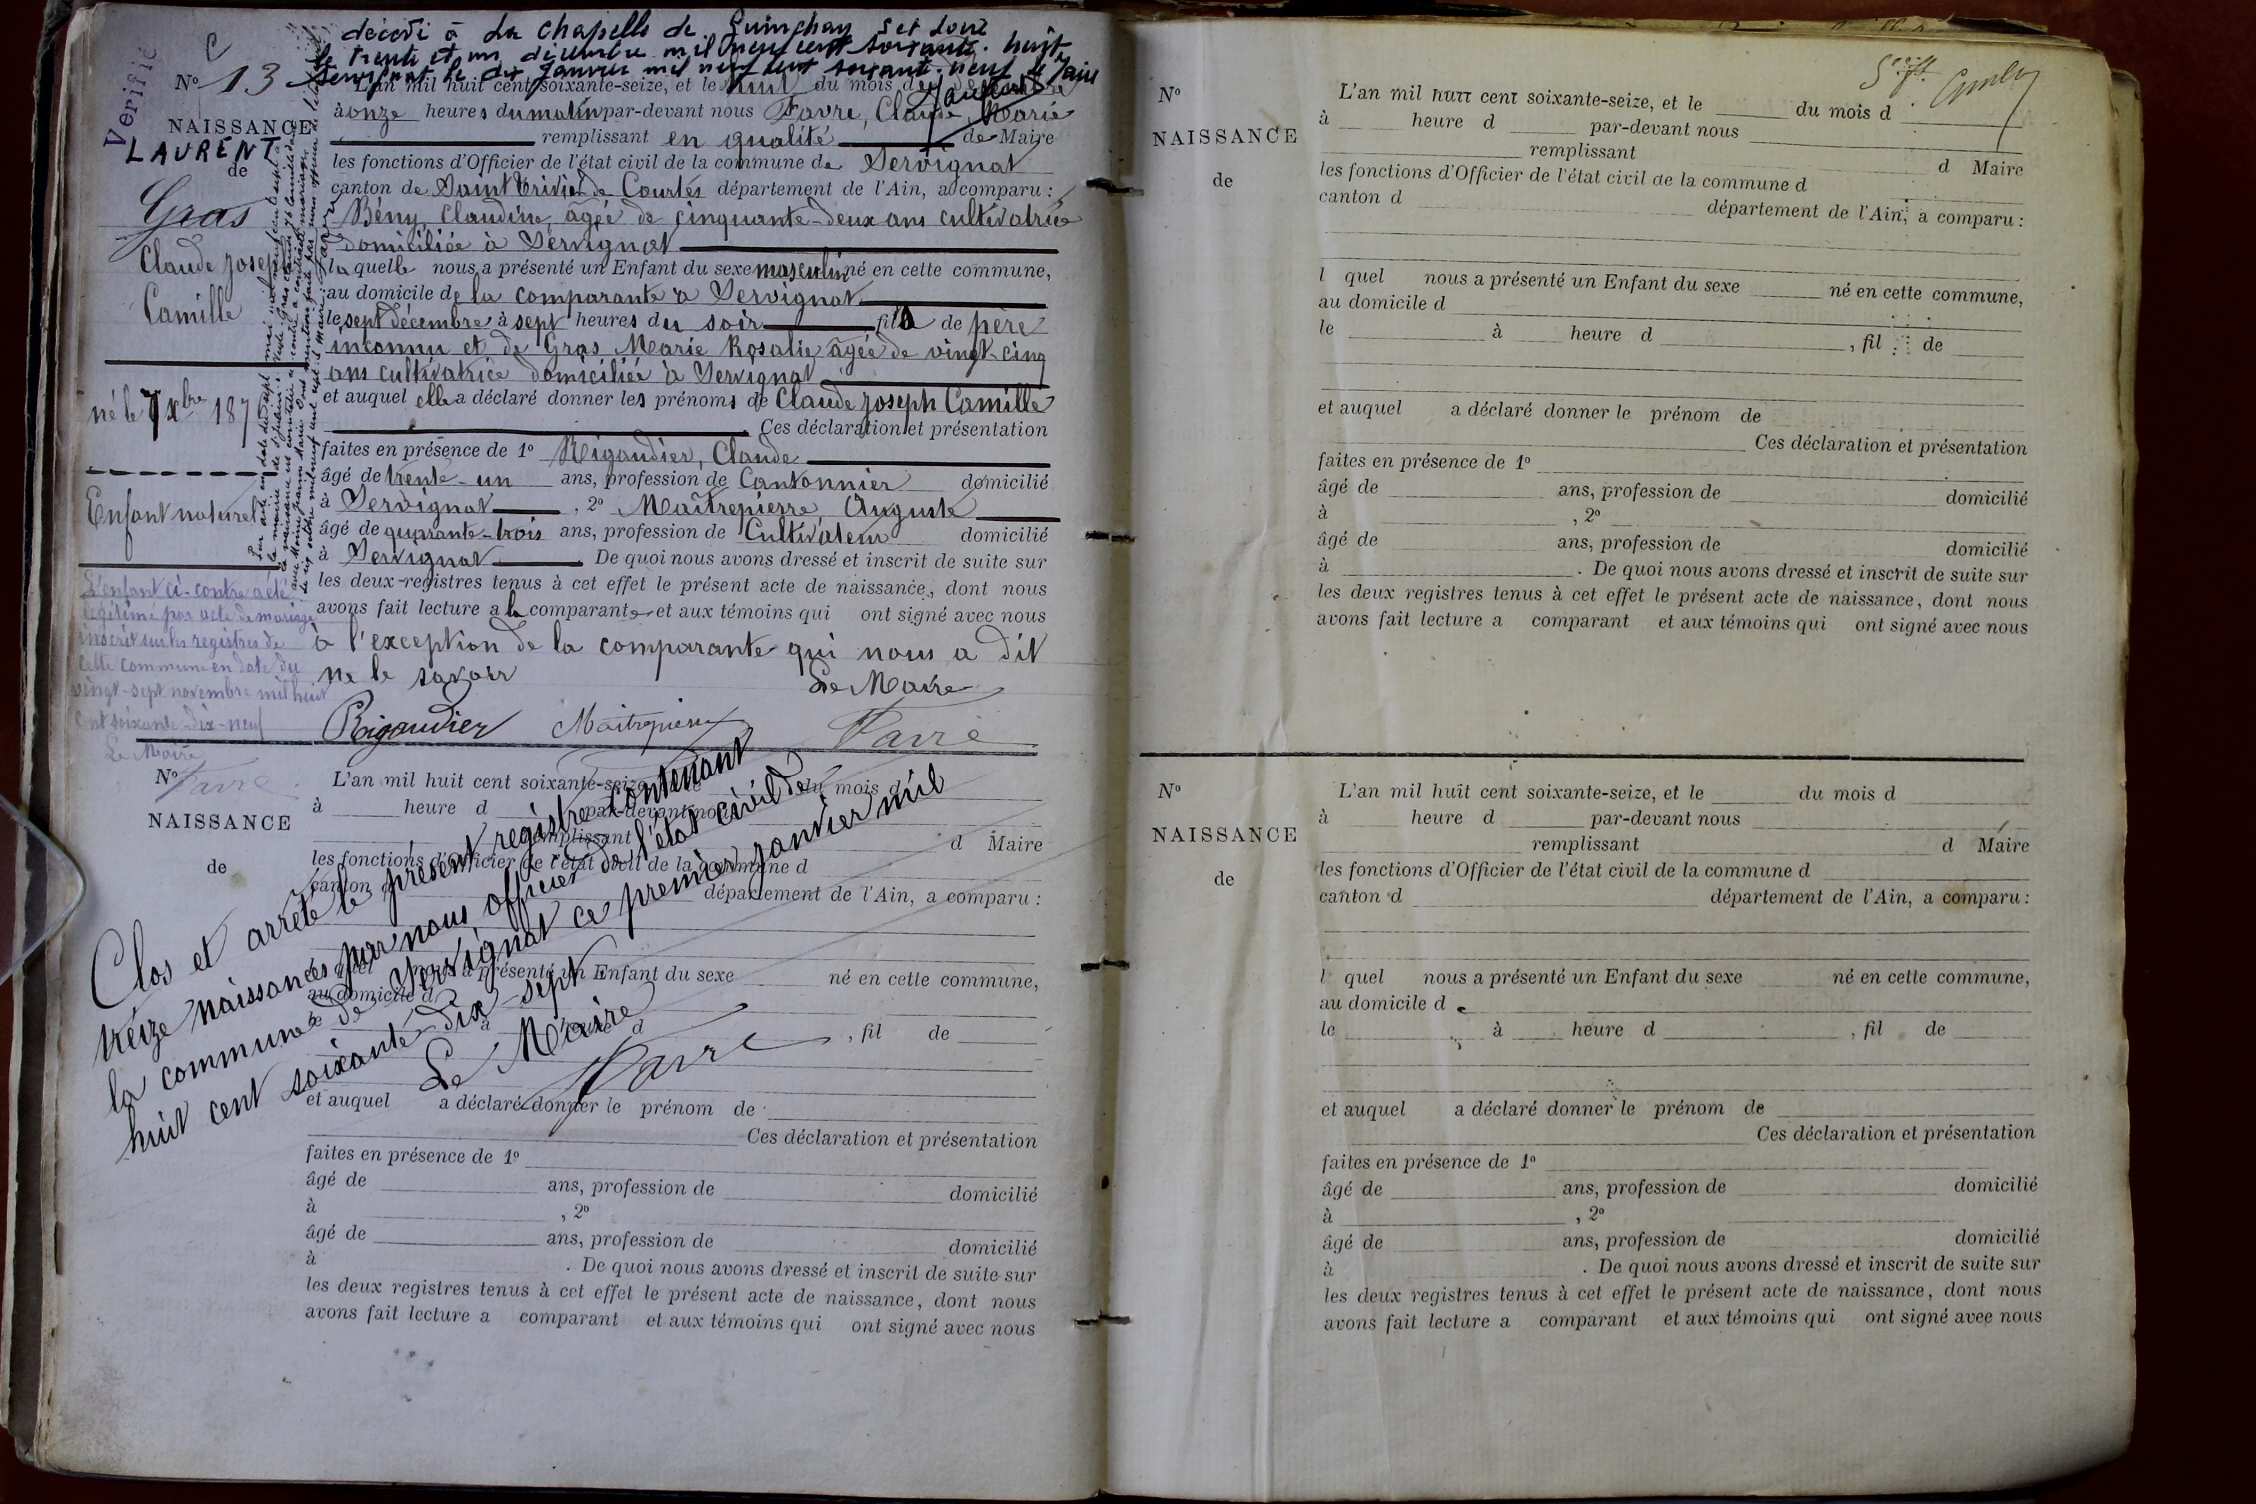 décédé à La Chapelle de Guinchay Set Loire
le trente et un décembre mil neuf cent soixante-huit
Servignat le dix janvier mil neuf cent soixante-neuf le Maire
Vérifié
Nº 13
NAISSANCE
LAURENT
de
Gras
Claude Joseph
Camille
né le 7 Xbre 187
Enfant naturel
L'enfant ci-contre a été
légitimé par acte de mariage
inscrit sur les registres de
cette commune en date du
vingt-sept novembre mil huit
cent soixante-dix-neuf
Le Maire
Favre
L'an mil huit cent soixante-seize, et le huit du mois de décembre
à onze heures du matin par-devant nous Favre, Claude, Marie
remplissant en qualité de Maire
les fonctions d'Officier de l'état civil de la commune de Servignat
canton de Saint Trivier de Courtes département de l'Ain, a comparu :
Bény, Claudine, âgée de cinquante-deux ans cultivatrice
domiciliée à Servignat
la quelle nous a présenté un Enfant du sexe masculin né en cette commune,
au domicile de la comparante à Servignat
le sept décembre à sept heures du soir fils de père
inconnu et de Gras Marie Rosalie âgée de vingt-cinq
ans cultivatrice domiciliée à Servignat
et auquel elle a déclaré donner les prénoms de Claude Joseph Camille
Ces déclaration et présentation
faites en présence de 1º Rigaudier, Claude
âgé de trente-un ans, profession de Cantonnier domicilié
à Servignat, 2º Maîtrepierre, Auguste
âgé de quarante-trois ans, profession de Cultivateur domicilié
à Servignat. De quoi nous avons dressé et inscrit de suite sur
les deux registres tenus à cet effet le présent acte de naissance, dont nous
avons fait lecture a la comparante et aux témoins qui ont signé avec nous
à l'exception de la comparante qui nous a dit
ne le savoir
Le Maire
Rigaudier Maitrepierre Favre
Nº
NAISSANCE
de
L'an mil huit cent soixante-seize, et le du mois d
à heure d par-devant nous
remplissant d Maire
les fonctions d'Officier de l'état civil de la commune d
canton d département de l'Ain, a comparu :
l quel nous a présenté un Enfant du sexe né en cette commune,
au domicile d
le à heure d , fil de
et auquel a déclaré donner le prénom de
Ces déclaration et présentation
faites en présence de 1º
âgé de ans, profession de domicilié
à , 2º
âgé de ans, profession de domicilié
à . De quoi nous avons dressé et inscrit de suite sur
les deux registres tenus à cet effet le présent acte de naissance, dont nous
avons fait lecture a comparant et aux témoins qui ont signé avec nous
Clos et arrêté le présent registre contenant
treize naissances par nous officier de l'état civil de
la commune de Servignat ce premier janvier mil
huit cent soixante dix-sept
Le Maire
Favre
Nº
NAISSANCE
de
L'an mil huit cent soixante-seize, et le du mois d
à heure d par-devant nous
remplissant d Maire
les fonctions d'Officier de l'état civil de la commune d
canton d département de l'Ain, a comparu :
l quel nous a présenté un Enfant du sexe né en cette commune,
au domicile d
le à heure d , fil de
et auquel a déclaré donner le prénom de
Ces déclaration et présentation
faites en présence de 1º
âgé de ans, profession de domicilié
à , 2º
âgé de ans, profession de domicilié
à . De quoi nous avons dressé et inscrit de suite sur
les deux registres tenus à cet effet le présent acte de naissance, dont nous
avons fait lecture a comparant et aux témoins qui ont signé avec nous
Nº
NAISSANCE
de
L'an mil huit cent soixante-seize, et le du mois d
à heure d par-devant nous
remplissant d Maire
les fonctions d'Officier de l'état civil de la commune d
canton d département de l'Ain, a comparu :
l quel nous a présenté un Enfant du sexe né en cette commune,
au domicile d
le à heure d , fil de
et auquel a déclaré donner le prénom de
Ces déclaration et présentation
faites en présence de 1º
âgé de ans, profession de domicilié
à , 2º
âgé de ans, profession de domicilié
à . De quoi nous avons dressé et inscrit de suite sur
les deux registres tenus à cet effet le présent acte de naissance, dont nous
avons fait lecture a comparant et aux témoins qui ont signé avec nous